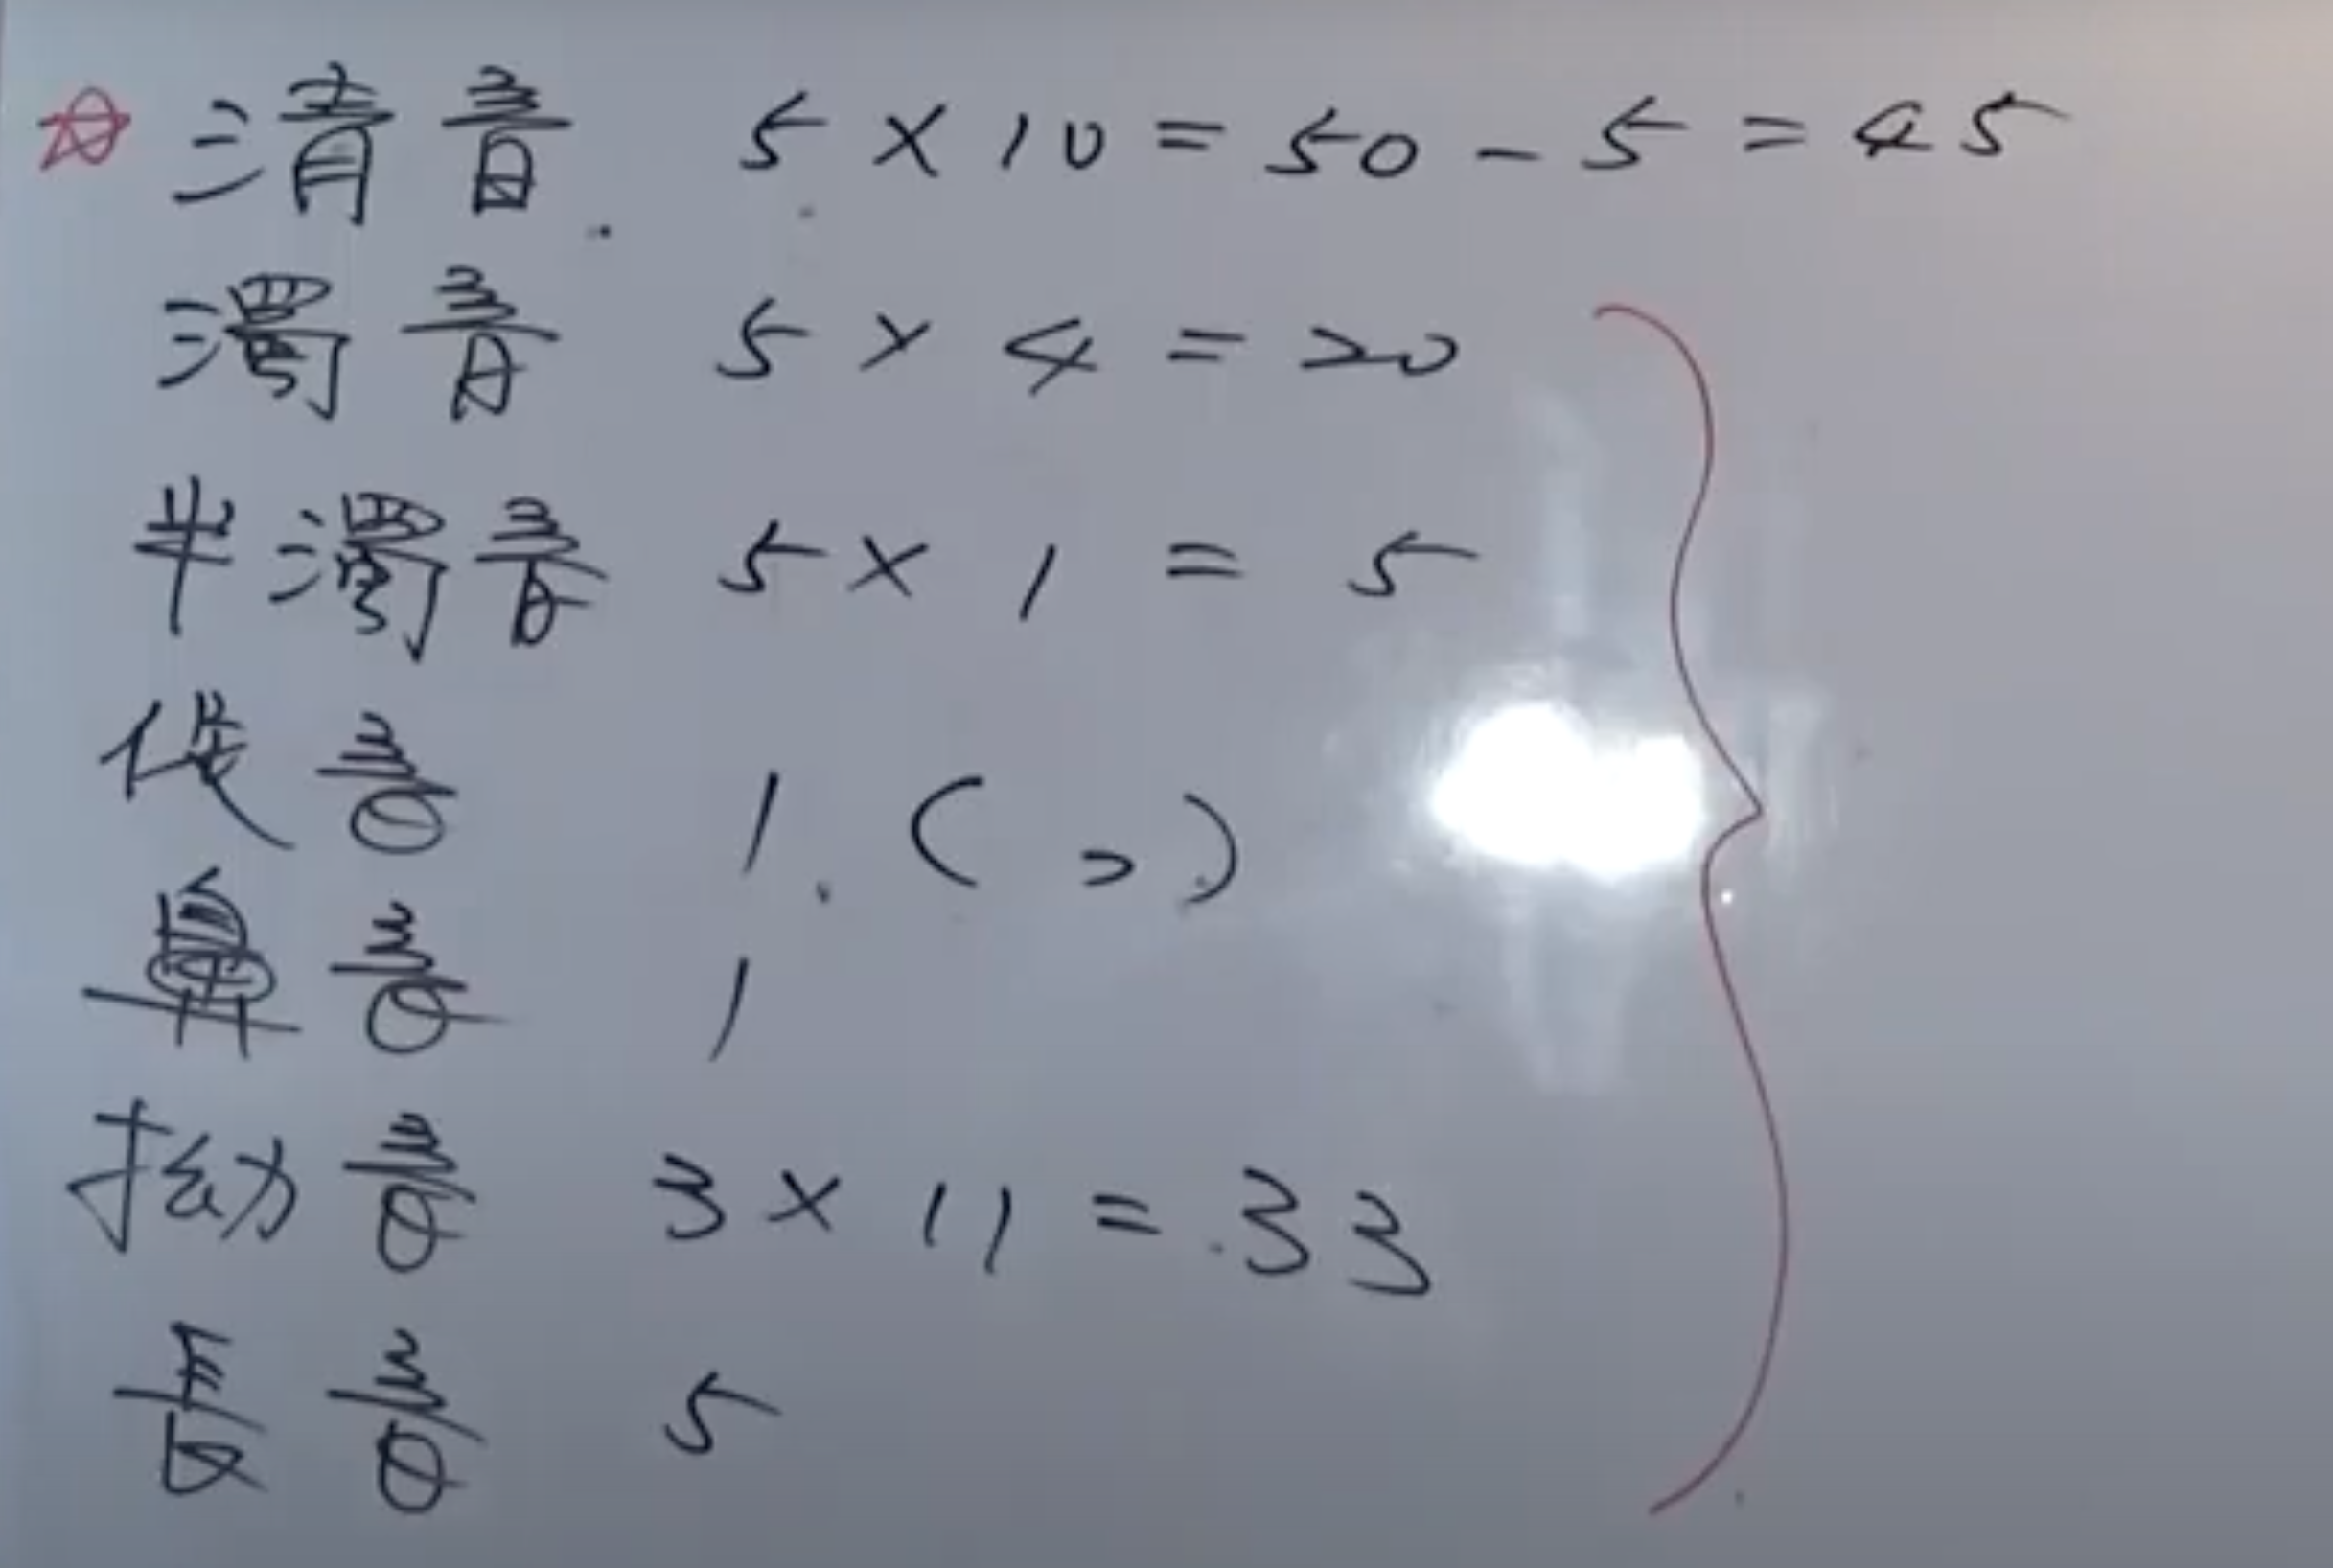 ☆ 清音 5 × 10 = 50 - 5 = 45
濁音 5 × 4 = 20
半濁音 5 × 1 = 5
促音 1 (っ)
鼻音 1
拗音 3 × 11 = 33
長音 5